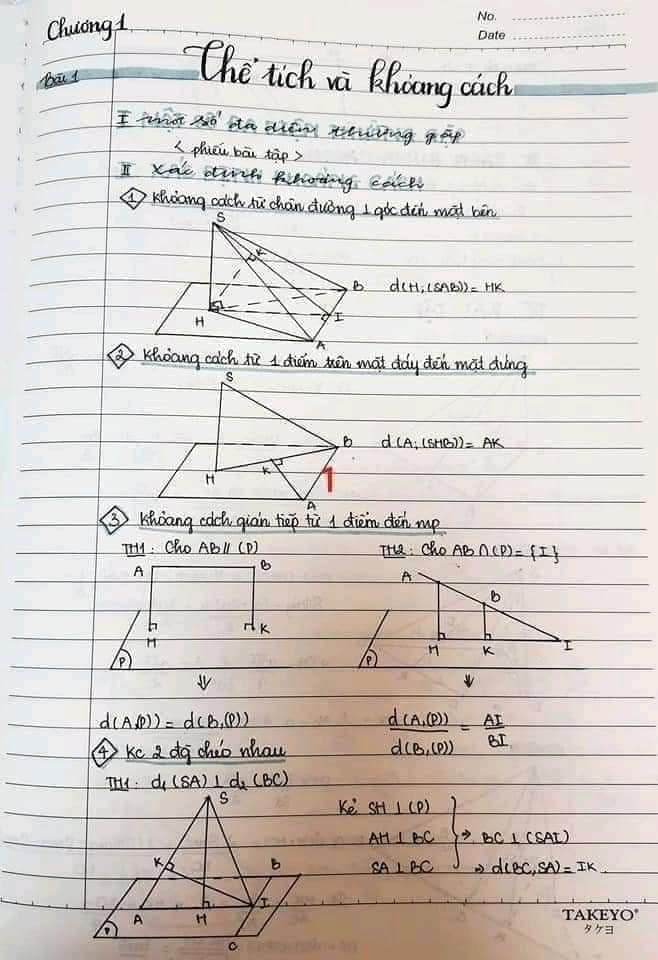 Chương 1
No.
Date
Bài 1
Thể tích và khoảng cách
I một số đa diện thường gặp
< phiếu bài tập >
II Xác định khoảng cách
1 Khoảng cách từ chân đường ⊥ góc đến mặt bên
S
K
B
d(H,(SAB)) = HK
H
I
A
2 Khoảng cách từ 1 điểm trên mặt đáy đến mặt đứng
S
B
d(A,(SHB)) = AK
H
K
1
A
3 Khoảng cách gián tiếp từ 1 điểm đến mp
TH1: Cho AB // (P)
TH2: Cho AB ∩ (P) = {I}
A B
A
B
H K
P
H K I
P
⇓ ⇓
d(A,(P)) = d(B,(P))
d(A,(P)) / d(B,(P)) = AI / BI
4 Kc 2 đg chéo nhau
TH1: d₁ (SA) ⊥ d₂ (BC)
S
Kẻ SH ⊥ (P)
AH ⊥ BC
⇒ BC ⊥ (SAI)
SA ⊥ BC
⇒ d(BC,SA) = IK
K
B
P
A H I
C
TAKEYO®
タケヨ